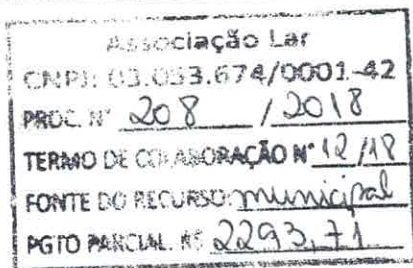 Associação Lar
CNPJ: 03.053.674/0001-42
PROC. Nº 208 / 2018
TERMO DE COLABORAÇÃO Nº 12/18
FONTE DO RECURSO: municipal
PGTO PARCIAL. R$ 2293,71